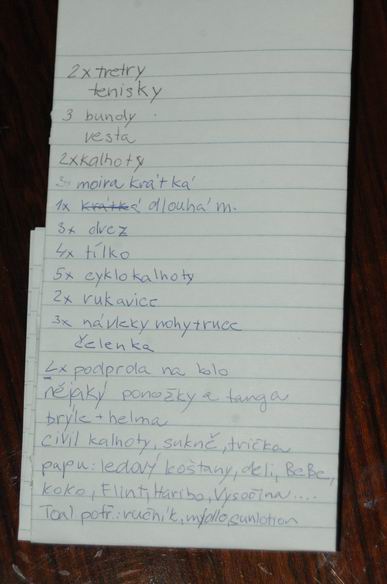 2x tretry
tenisky
3 bundy
vesta
2xkalhoty
3x moira krátká
1x krátká dlouhá m.
3x drez
4x tílko
5x cyklokalhoty
2x rukavice
3x návleky nohy+ruce
čelenka
2x podprda na kolo
nějaký ponožky a tanga
brýle + helma
civil kalhoty, sukně, trička
papu: ledový kaštany, deli, BeBe,
koko, Flint, Haribo, Vysočina....
Toal potř.: ručník, mýdlo, sunlotion